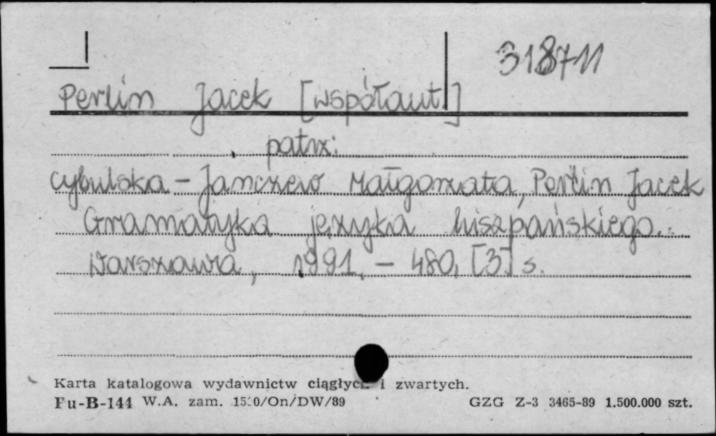 318711
Perlin Jacek [współaut.]
patrz:
Cybulska - Janczew Małgorzata, Perlin Jacek
Gramatyka języka hiszpańskiego.
Warszawa, 1991. - 480, [3] s.
Karta katalogowa wydawnictw ciągłych i zwartych.
Fu-B-144 W.A. zam. 1520/On/DW/89 GZG Z-3 3465-89 1.500.000 szt.